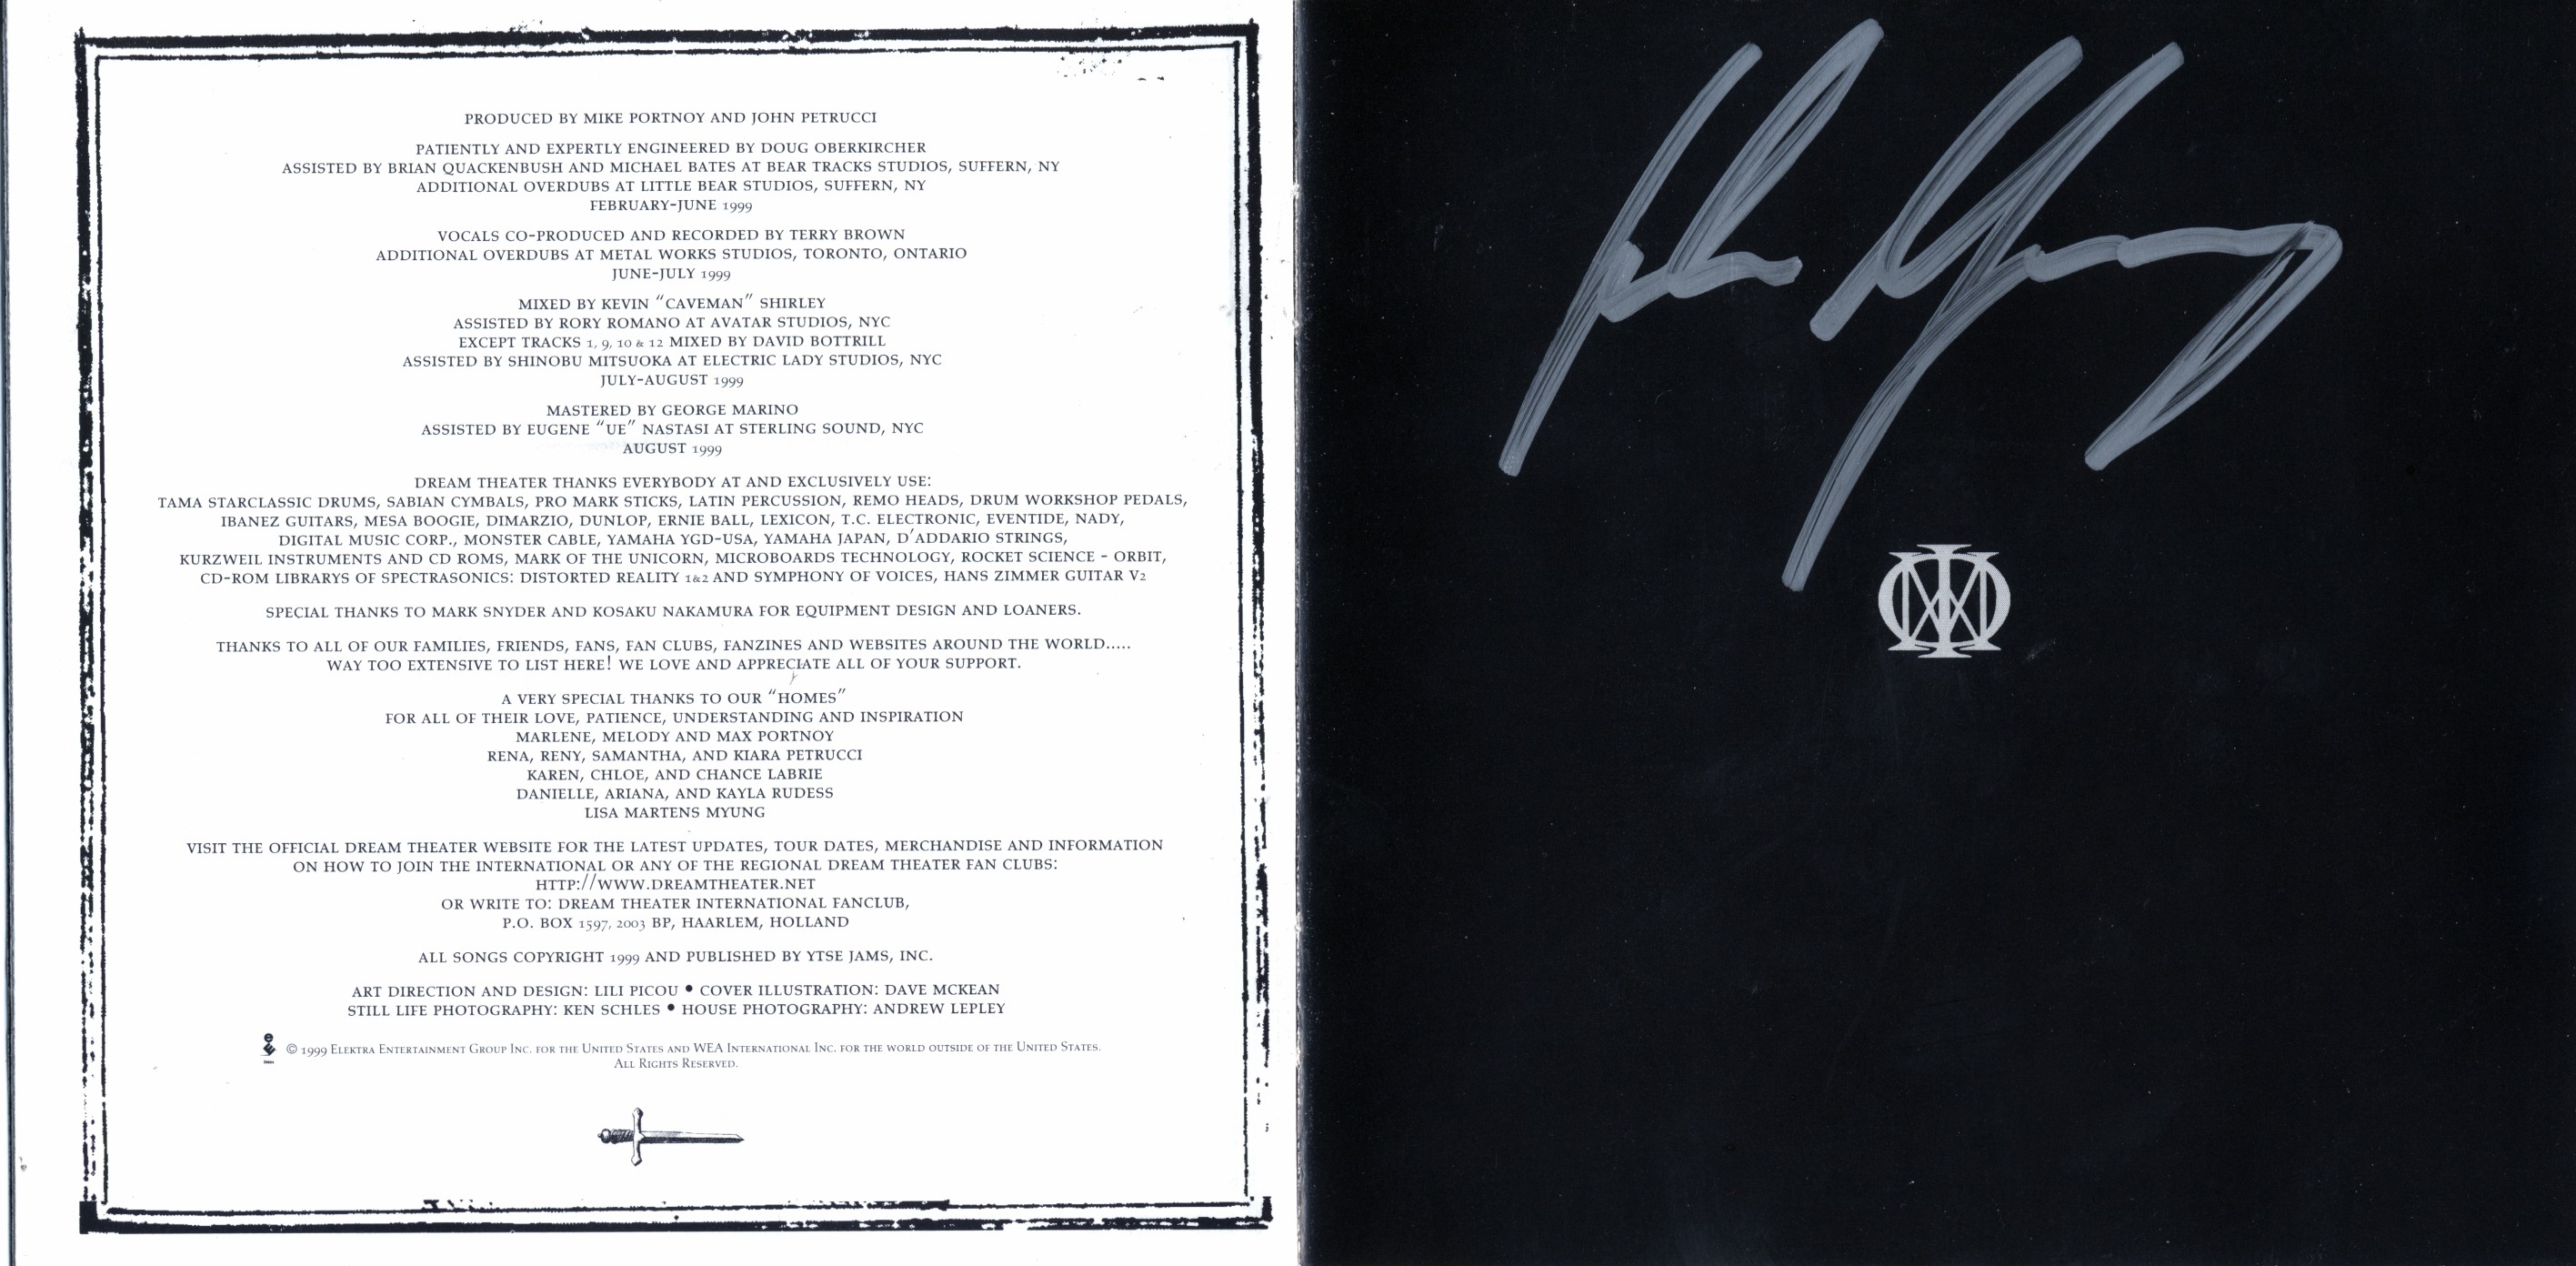 PRODUCED BY MIKE PORTNOY AND JOHN PETRUCCI
PATIENTLY AND EXPERTLY ENGINEERED BY DOUG OBERKIRCHER
ASSISTED BY BRIAN QUACKENBUSH AND MICHAEL BATES AT BEAR TRACKS STUDIOS, SUFFERN, NY
ADDITIONAL OVERDUBS AT LITTLE BEAR STUDIOS, SUFFERN, NY
FEBRUARY-JUNE 1999
VOCALS CO-PRODUCED AND RECORDED BY TERRY BROWN
ADDITIONAL OVERDUBS AT METAL WORKS STUDIOS, TORONTO, ONTARIO
JUNE-JULY 1999
MIXED BY KEVIN "CAVEMAN" SHIRLEY
ASSISTED BY RORY ROMANO AT AVATAR STUDIOS, NYC
EXCEPT TRACKS 1, 9, 10 & 12 MIXED BY DAVID BOTTRILL
ASSISTED BY SHINOBU MITSUOKA AT ELECTRIC LADY STUDIOS, NYC
JULY-AUGUST 1999
MASTERED BY GEORGE MARINO
ASSISTED BY EUGENE "UE" NASTASI AT STERLING SOUND, NYC
AUGUST 1999
DREAM THEATER THANKS EVERYBODY AT AND EXCLUSIVELY USE:
TAMA STARCLASSIC DRUMS, SABIAN CYMBALS, PRO MARK STICKS, LATIN PERCUSSION, REMO HEADS, DRUM WORKSHOP PEDALS,
IBANEZ GUITARS, MESA BOOGIE, DIMARZIO, DUNLOP, ERNIE BALL, LEXICON, T.C. ELECTRONIC, EVENTIDE, NADY,
DIGITAL MUSIC CORP., MONSTER CABLE, YAMAHA YGD-USA, YAMAHA JAPAN, D'ADDARIO STRINGS,
KURZWEIL INSTRUMENTS AND CD ROMS, MARK OF THE UNICORN, MICROBOARDS TECHNOLOGY, ROCKET SCIENCE - ORBIT,
CD-ROM LIBRARYS OF SPECTRASONICS: DISTORTED REALITY 1&2 AND SYMPHONY OF VOICES, HANS ZIMMER GUITAR V2
SPECIAL THANKS TO MARK SNYDER AND KOSAKU NAKAMURA FOR EQUIPMENT DESIGN AND LOANERS.
THANKS TO ALL OF OUR FAMILIES, FRIENDS, FANS, FAN CLUBS, FANZINES AND WEBSITES AROUND THE WORLD.....
WAY TOO EXTENSIVE TO LIST HERE! WE LOVE AND APPRECIATE ALL OF YOUR SUPPORT.
A VERY SPECIAL THANKS TO OUR "HOMES"
FOR ALL OF THEIR LOVE, PATIENCE, UNDERSTANDING AND INSPIRATION
MARLENE, MELODY AND MAX PORTNOY
RENA, RENY, SAMANTHA, AND KIARA PETRUCCI
KAREN, CHLOE, AND CHANCE LABRIE
DANIELLE, ARIANA, AND KAYLA RUDESS
LISA MARTENS MYUNG
VISIT THE OFFICIAL DREAM THEATER WEBSITE FOR THE LATEST UPDATES, TOUR DATES, MERCHANDISE AND INFORMATION
ON HOW TO JOIN THE INTERNATIONAL OR ANY OF THE REGIONAL DREAM THEATER FAN CLUBS:
HTTP://WWW.DREAMTHEATER.NET
OR WRITE TO: DREAM THEATER INTERNATIONAL FANCLUB,
P.O. BOX 1597, 2003 BP, HAARLEM, HOLLAND
ALL SONGS COPYRIGHT 1999 AND PUBLISHED BY YTSE JAMS, INC.
ART DIRECTION AND DESIGN: LILI PICOU • COVER ILLUSTRATION: DAVE MCKEAN
STILL LIFE PHOTOGRAPHY: KEN SCHLES • HOUSE PHOTOGRAPHY: ANDREW LEPLEY
© 1999 Elektra Entertainment Group Inc. for the United States and WEA International Inc. for the world outside of the United States.
All Rights Reserved.